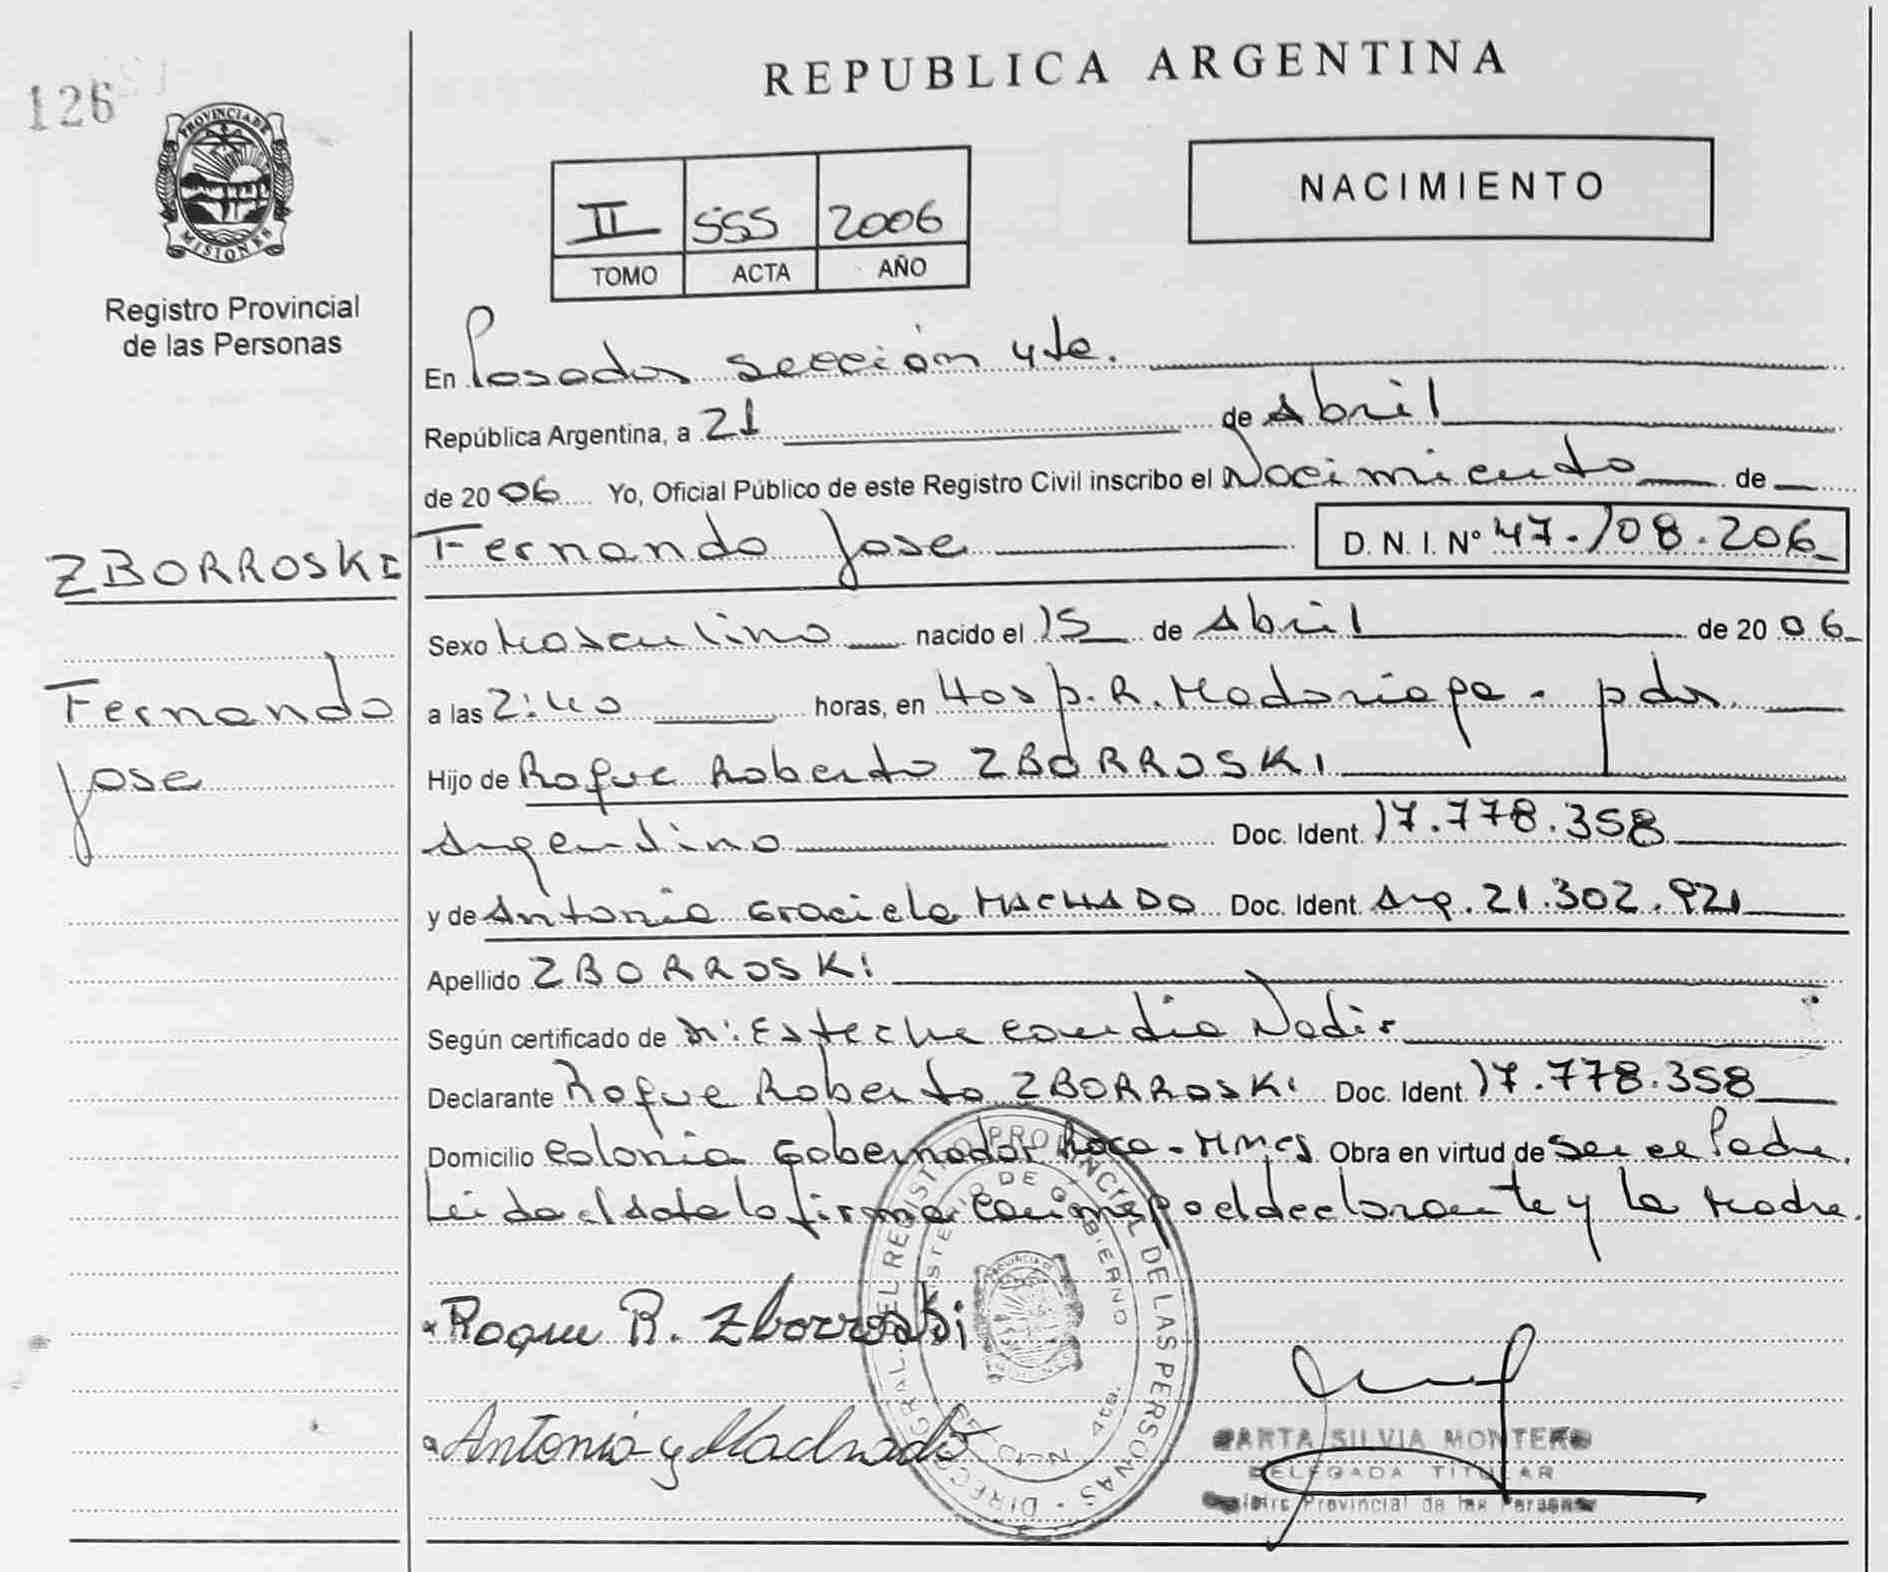 126
REPUBLICA ARGENTINA
PROVINCIA DE MISIONES
Registro Provincial
de las Personas
II 555 2006
TOMO ACTA AÑO
NACIMIENTO
En Posadas sección 4ta.
República Argentina, a 21 de Abril
de 2006 Yo, Oficial Público de este Registro Civil inscribo el Nacimiento de
ZBORROSKI
Fernando Jose D. N. I. N° 47.108.206
Sexo Masculino nacido el 15 de Abril de 2006
Fernando
a las 2:40 horas, en Hosp. R. Madariaga - pdas.
Jose
Hijo de Roque Roberto ZBORROSKI
Argentino Doc. Ident. 17.778.358
y de Antonia Graciela MACHADO Doc. Ident. Arg. 21.302.921
Apellido ZBORROSKI
Según certificado de Dr: Esteche Nadir
Declarante Roque Roberto ZBORROSKI Doc. Ident. 17.778.358
Domicilio Colonia Gobernador Roca - Mnes Obra en virtud de ser el Padre.
Leida el Acta la firma conmigo el declarante y la Madre.
Roque R. Zborroski
Antonia y Machado
DIREC. GRAL. DEL REGISTRO PROVINCIAL DE LAS PERSONAS
MINISTERIO DE GOBIERNO
SECCION 4ta.
MARTA SILVIA MONTERO
DELEGADA TITULAR
Registro Provincial de las Personas